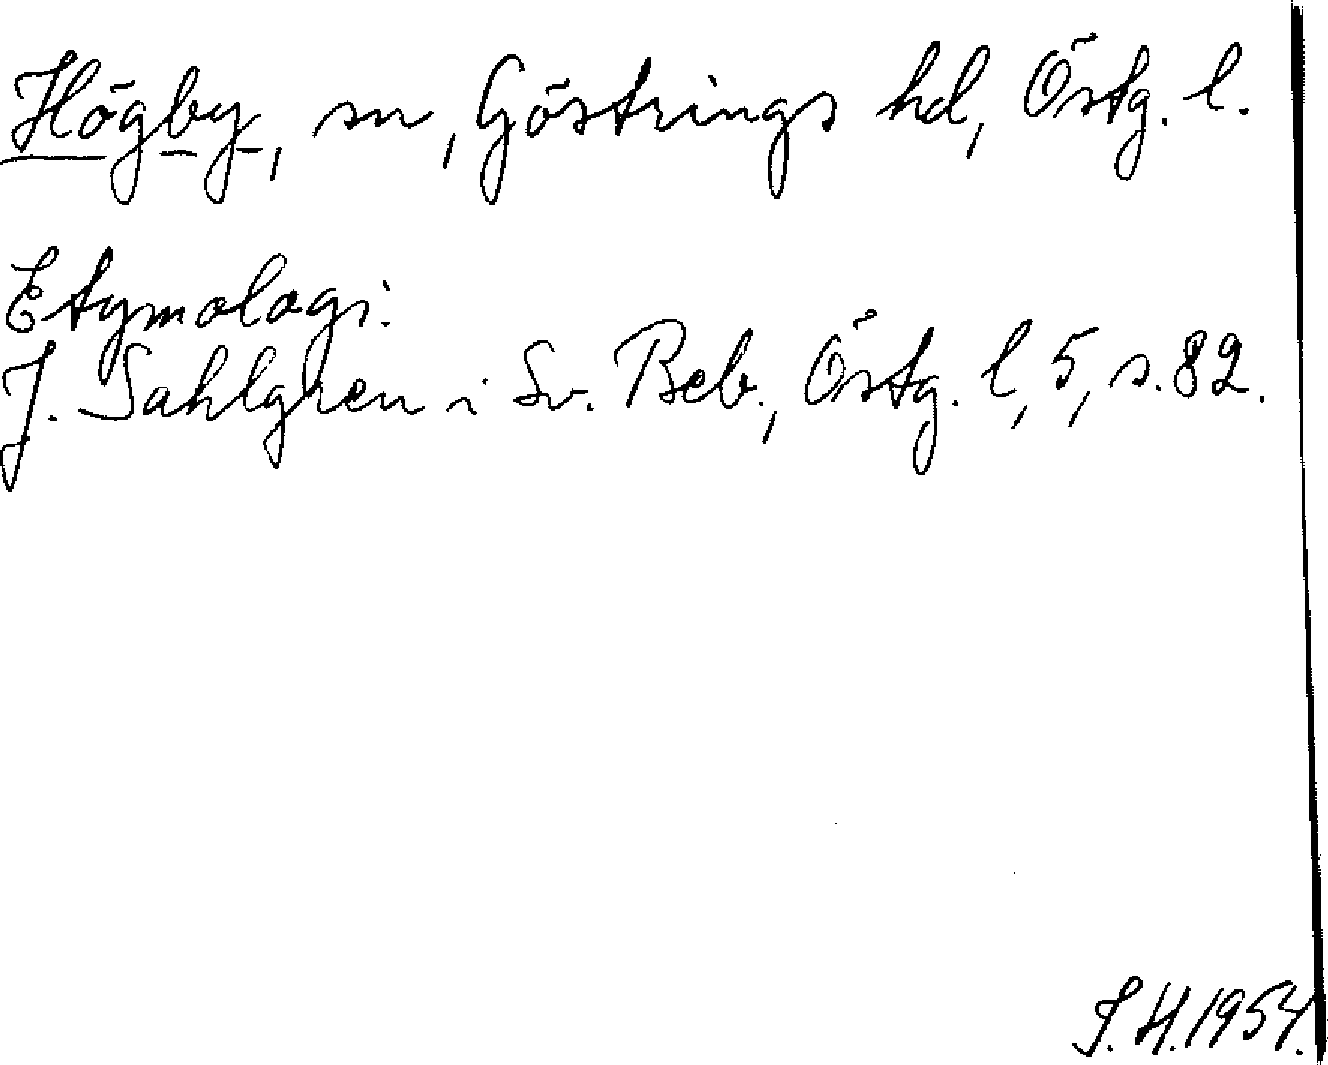 Högby, sn, Göstrings hd, Östg. l.
Etymologi:
J. Sahlgren i Sv. Beb., Östg. l, 5, s. 82.
S. H. 1954.